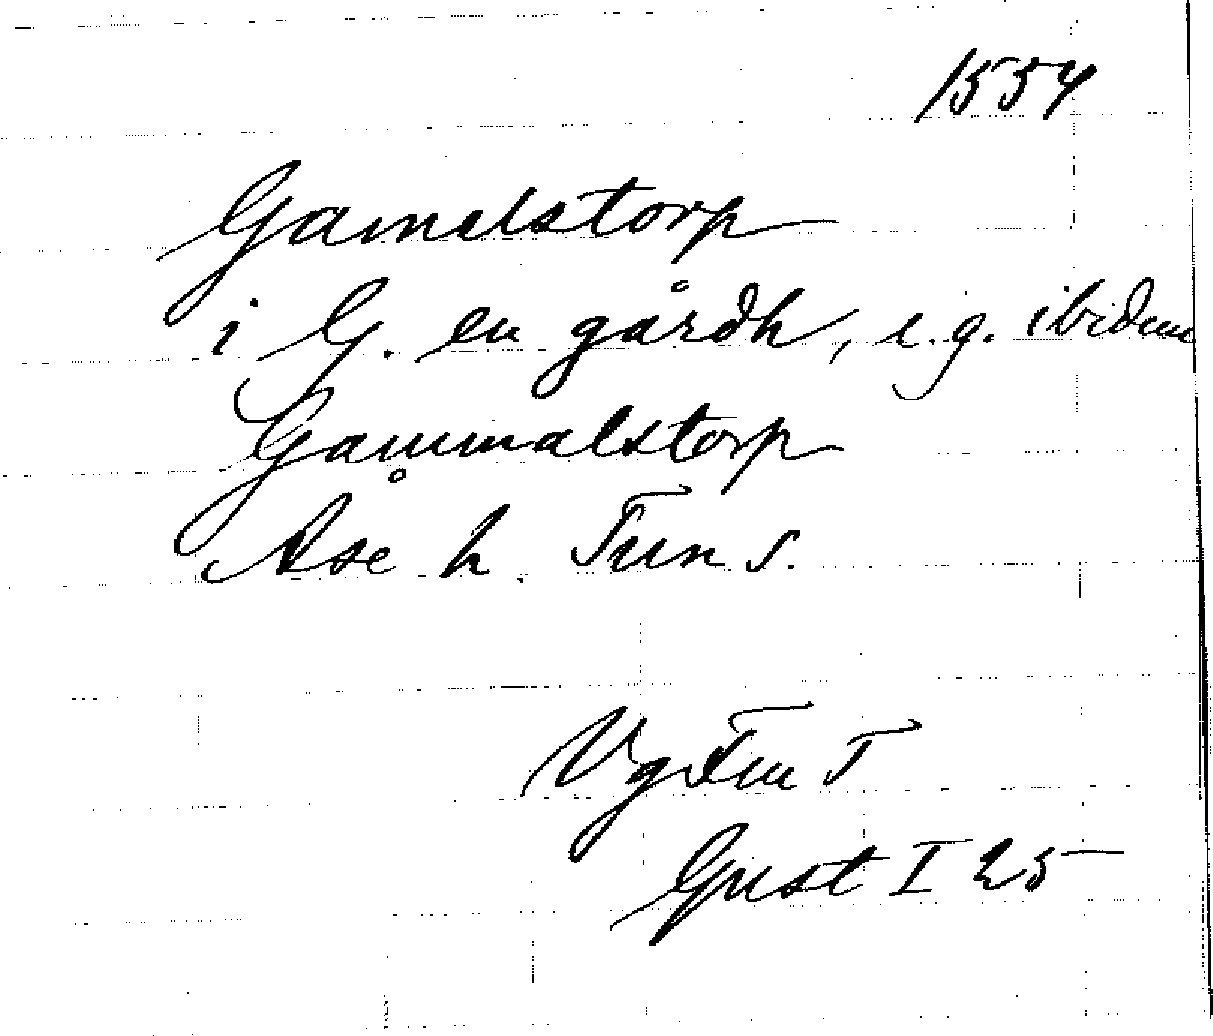 1554
Gamelstorp
i G. en gårdh, e.g. ibidem
Gammalstorp
Åse h. Tun s.
Vg Tun T
Gust I 25